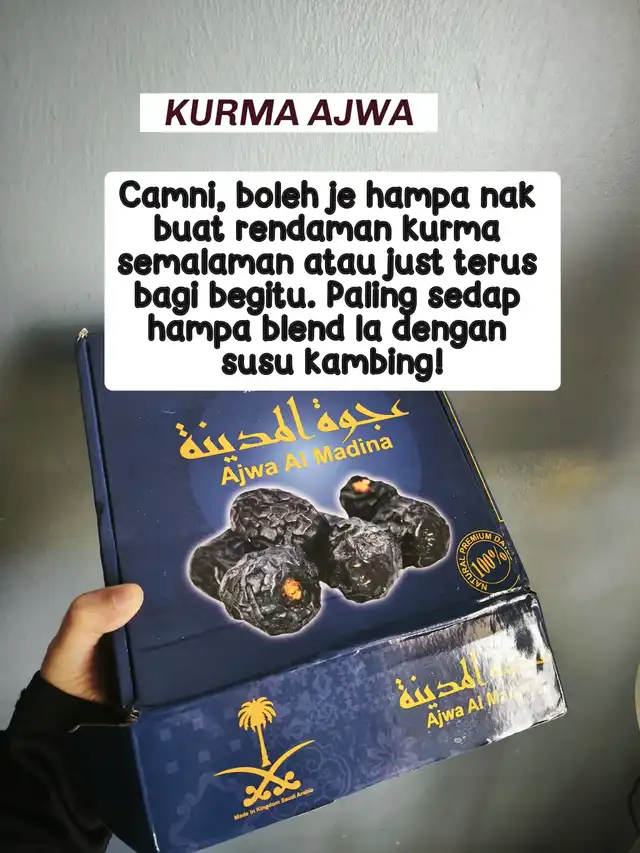 KURMA AJWA
Camni, boleh je hampa nak
buat rendaman kurma
semalaman atau just terus
bagi begitu. Paling sedap
hampa blend la dengan
susu kambing!
عجوة المدينة
Ajwa Al Madina
NATURAL PREMIUM
100%
عجوة المدينة
Ajwa Al
Made in Kingdom Saudi Arabia